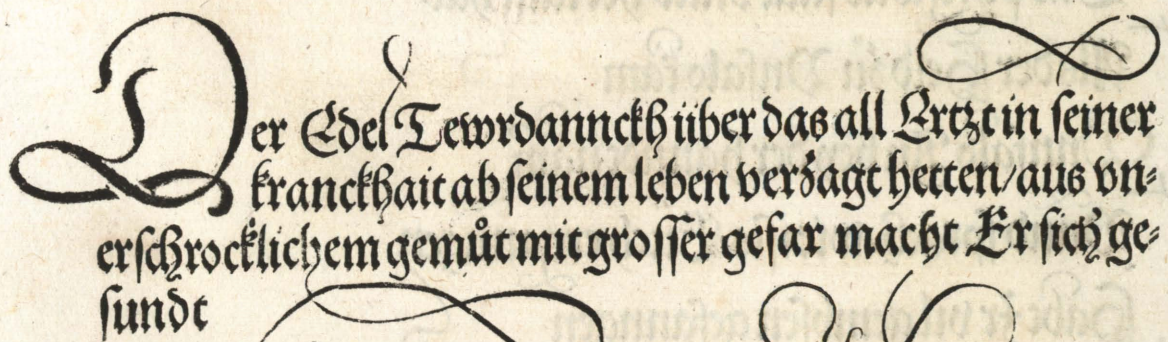 Der Edel Tewrdannckh über das all Ertzt in seiner
kranckhait ab seinem leben verzagt hetten/ aus vn-
erschrocklichem gemůt mit grosser gefar macht Er sich ge-
sundt